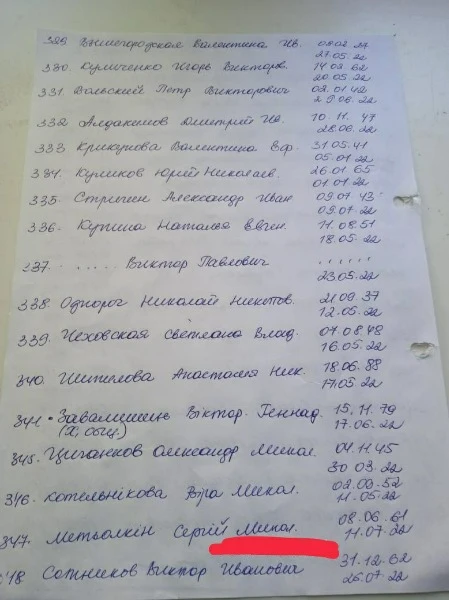 329. Вышегородская Валентина Ив. 09.02.27
27.05.22
330. Куличенко Игорь Викторов. 14.02.62
20.05.22
331. Вольский Петр Викторович 02.01.42
29.06.22
332. Алдакимов Дмитрий Ив. 10.11.47
28.06.22
333. Крикунова Валентина Еф. 31.05.41
05.01.22
334. Куликов Юрий Николаев. 26.01.65
01.01.22
335. Стригин Александр Иван 09.07.43
09.07.22
336. Купина Наталья Евген. 11.08.51
18.05.22
337. ...... Виктор Павлович ......
23.05.22
338. Однорог Николай Никитов. 21.09.37
12.05.22
339. Чеховская Светлана Влад. 07.08.48
16.05.22
340. Шипилова Анастасия Ник. 18.06.88
17.05.22
341. Завалишин Віктор Геннад. 15.11.79
17.06.22
345. Циганков Олександр Микол. 04.11.45
30.03.22
346. Котельнікова Віра Микол. 02.09.52
11.05.22
347. Метьолкін Сергій Микол. 08.06.61
11.07.22
348 Сотников Виктор Иванович 31.12.62
26.07.22